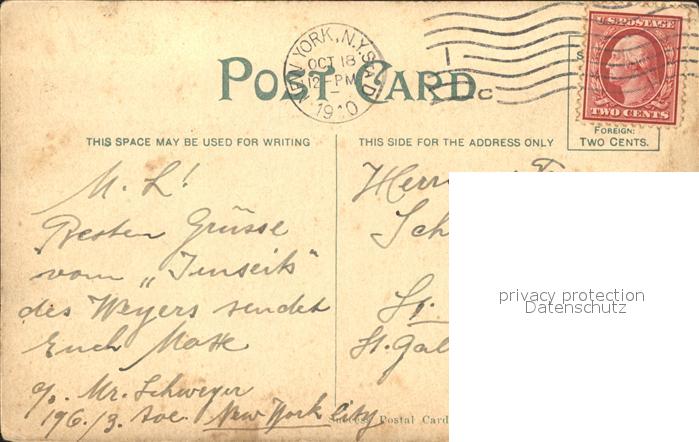 NEW YORK, N.Y. STA. D
OCT 18
12-PM
1910
U.S. POSTAGE
TWO CENTS
POST CARD
FOREIGN:
TWO CENTS.
THIS SPACE MAY BE USED FOR WRITING
THIS SIDE FOR THE ADDRESS ONLY
M. L!
Besten Grüsse
vom „Jenseits“
des Weyers sendet
Euch
c/o. Mr. Schweyer
196./3. Ave New York City
Herrn
Sch
St.
St. Gal
privacy protection
Datenschutz
Success Postal Card